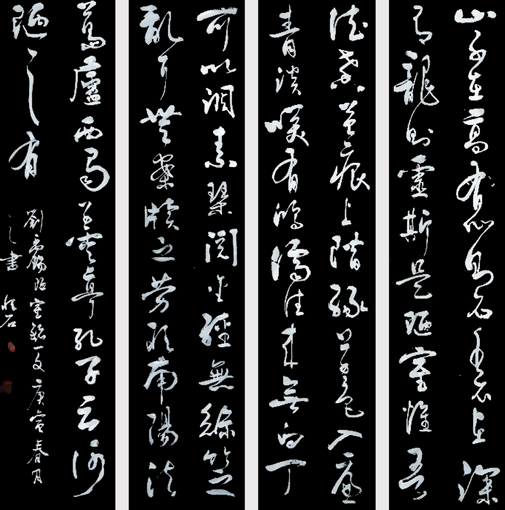 山不在高有仙則名水不在深
有龍則靈斯是陋室惟吾
德馨苔痕上階綠草色入簾
青談笑有鴻儒往來無白丁
可以調素琴閱金經無絲竹之
亂耳無案牘之勞形南陽諸
葛廬西蜀子雲亭孔子云何
陋之有
劉禹錫陋室銘一文庚寅春月
書 石